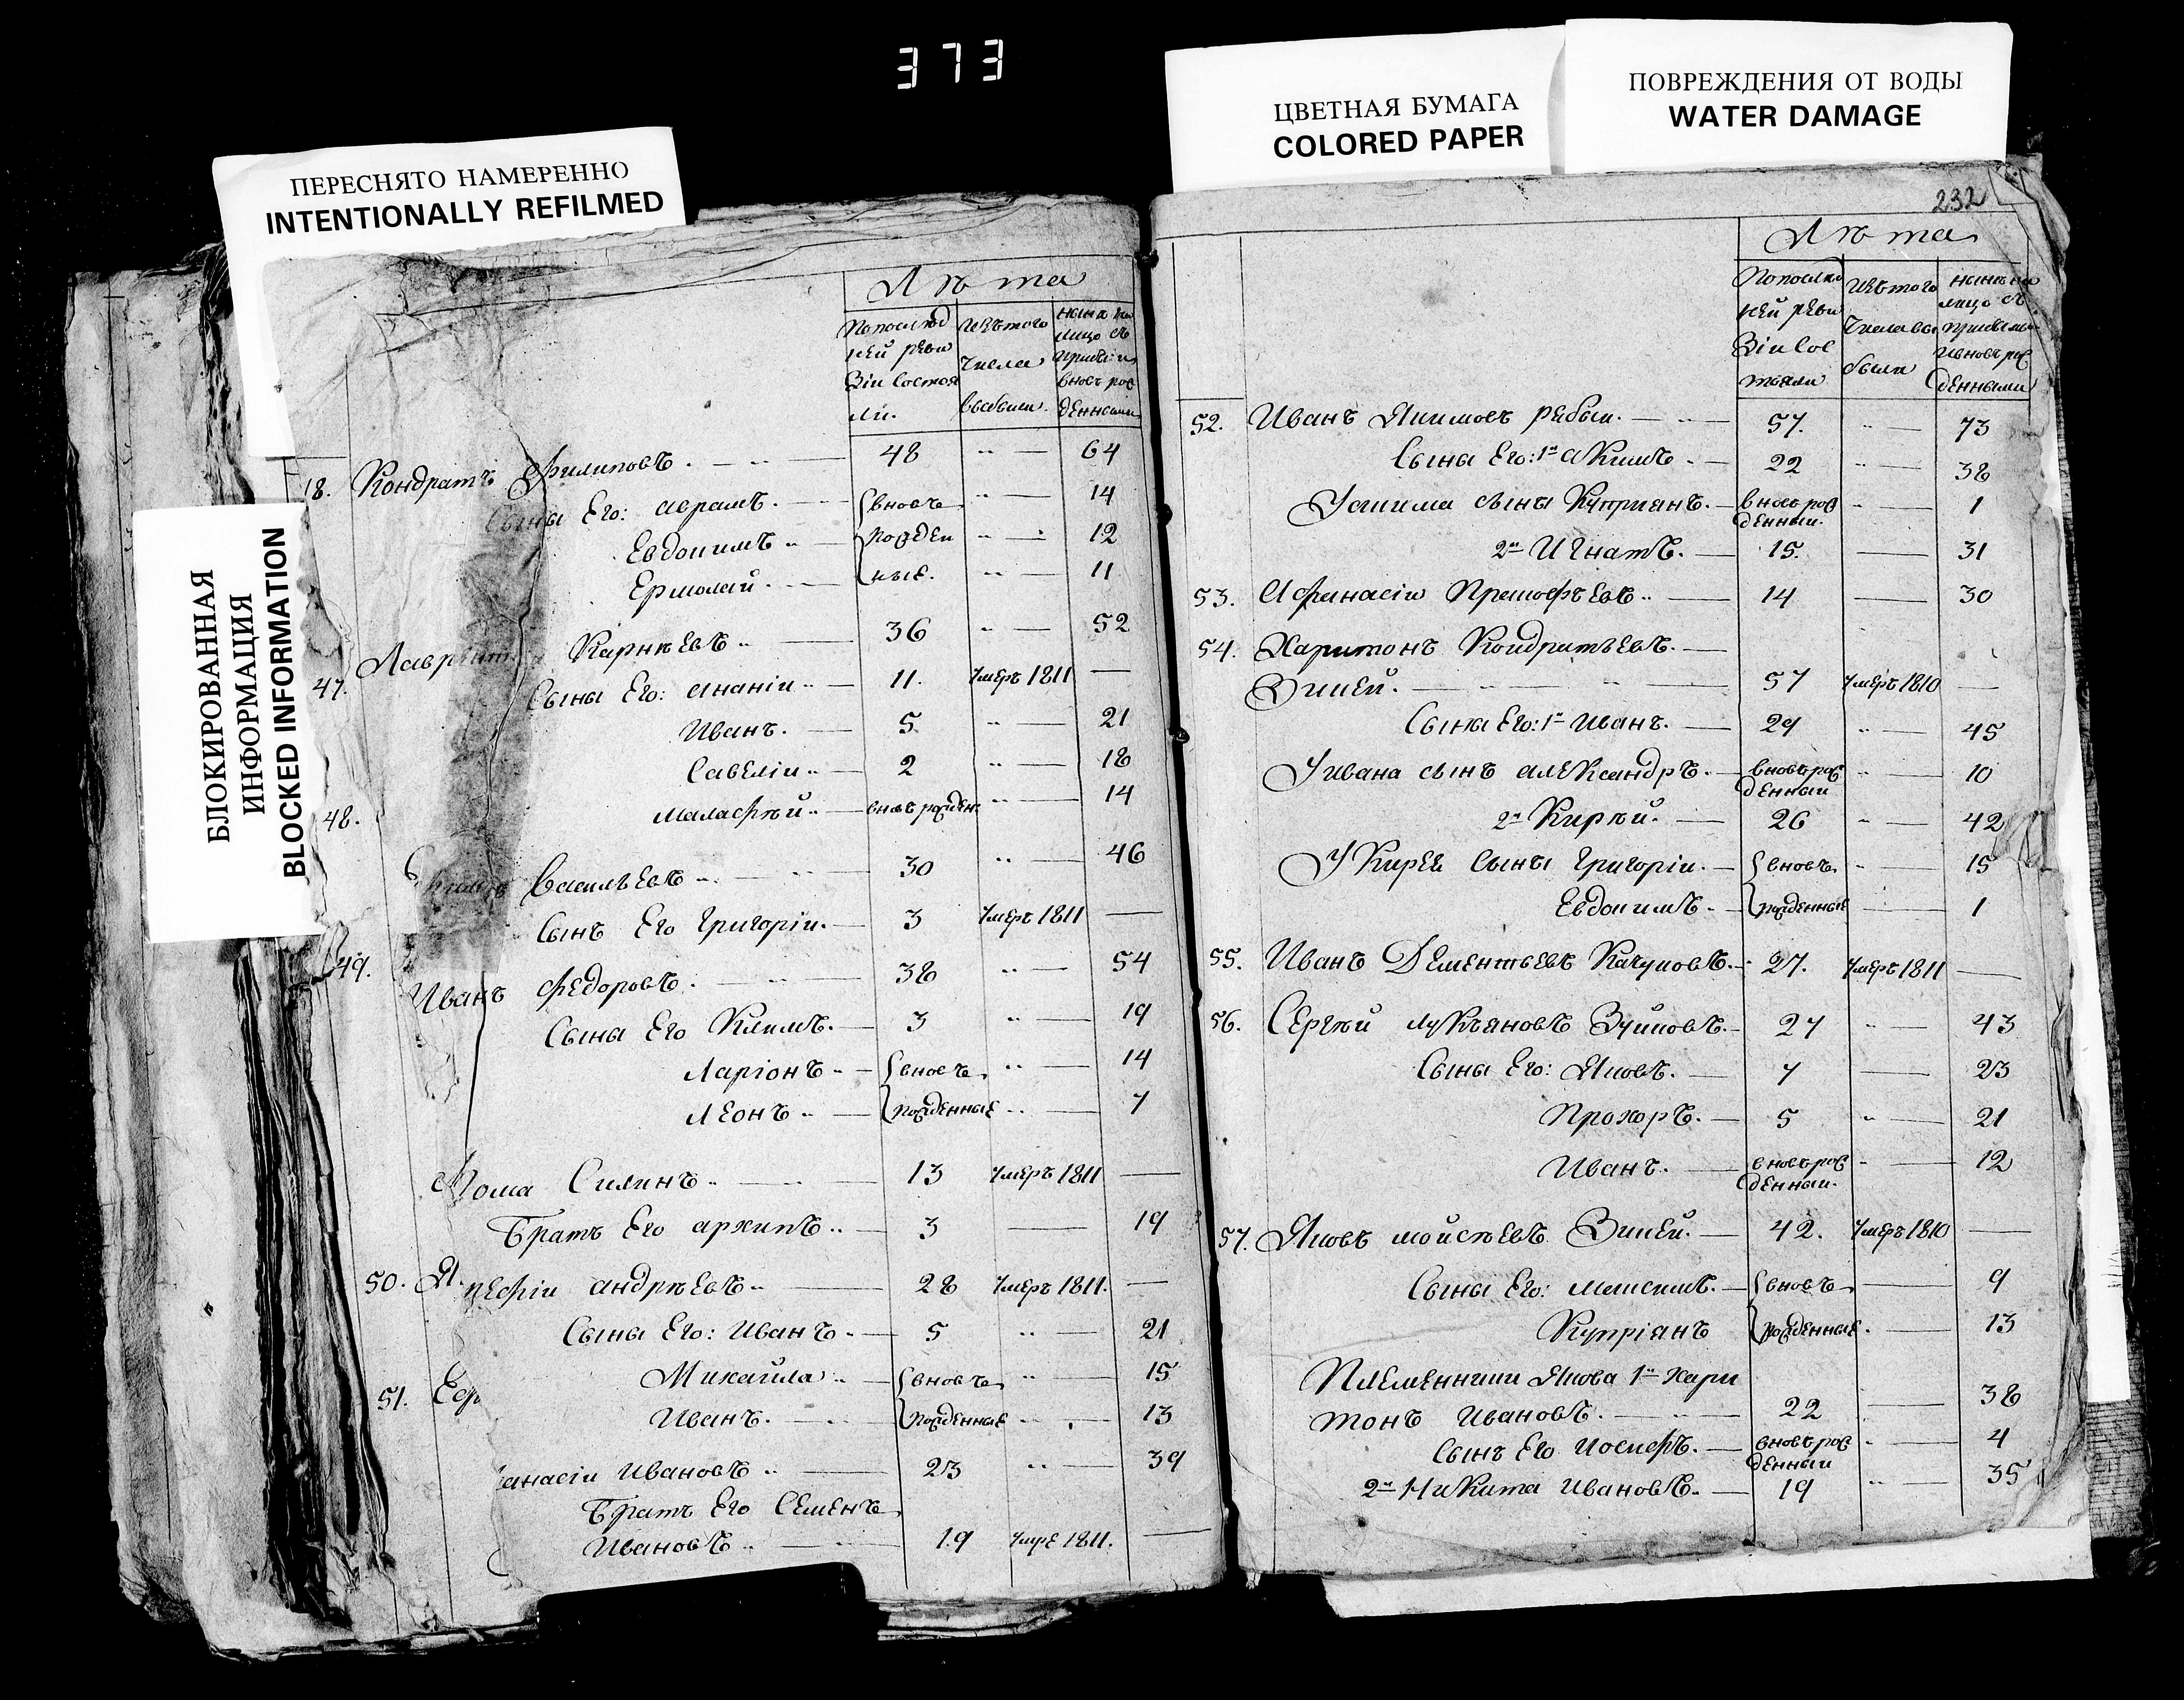 373
ПЕРЕСНЯТО НАМЕРЕННО
INTENTIONALLY REFILMED
ЦВЕТНАЯ БУМАГА
COLORED PAPER
ПОВРЕЖДЕНИЯ ОТ ВОДЫ
WATER DAMAGE
БЛОКИРОВАННАЯ
ИНФОРМАЦИЯ
BLOCKED INFORMATION
Лѣта
По послѣд
ней реви
зіи состоя
ли.
Изъ того
числа
выбыли.
Нынѣ на
лицо съ
вновь рож
денными
18. Кондратъ Филиповъ. 48 64
Сыны Его: Аврамъ. вновь 14
Евдокимъ рожден 12
Ермолай. ные. 11
47. Лаврент Карнѣевъ 36 52
Сыны Его: Ананіи 11. умеръ 1811
Иванъ. 5 21
Савеліи 2 18
Малафѣй вновь рожден. 14
48. Васильевъ 30 46
Сынъ Его Григоріи. 3 умеръ 1811
49. Иванъ Федоровъ. 38 54
Сыны Его Климъ. 3 19
Ларіонъ вновь 14
Леонъ рожденные 7
Фома Силинъ 13 умеръ 1811
Братъ Его Архипъ 3 19
50. Андрѣевъ 28 умеръ 1811.
Сыны Его: Иванъ 5 21
Михайла вновь 15
Иванъ. рожденные 13
51. анасіи Ивановъ 23 39
Братъ Его Семенъ
Ивановъ 19 умре 1811.
232
Лѣта
По послѣд
ней реви
зіи сос
тояли
Изъ того
числа вы
были
Нынѣ на
лицо съ
и вновь рож
денными
52. Иванъ Якимовъ рабыи. 57. 73
Сыны Его: 1й Акимъ 22 38
У Акима сынъ Куприанъ. вновь рож 1
денныи.
2й Игнатъ. 15. 31
53. Афанасіи Прокофьевъ 14 30
54. Харитонъ Кондратьевъ.
Зикей. 57 умеръ 1810
Сыны Его: 1й Иванъ. 29 45
У Ивана сынъ Александръ. вновь рож 10
денныи
2й Кирѣй. 26 42
У Кирея сыны Григоріи. вновь 15
Евдокимъ. рожденные 1
55. Иванъ Дементьевъ Качуновъ. 27. умеръ 1811
56. Сергѣй Лукъяновъ Зуйковъ. 27 43
Сыны Его: Яковъ. 7 23
Прохоръ. 5 21
Иванъ. вновь рож 12
денныи.
57. Яковъ Мойсѣевъ Зикей. 42. умеръ 1810
Сыны Его: Максимъ. вновь 9
Купріянъ рожденные 13
Племенники Якова 1й Хари
тонъ Ивановъ. 22 38
Сынъ Его Иосифъ. вновь рож 4
денныи
2й Никита Ивановъ. 19 35